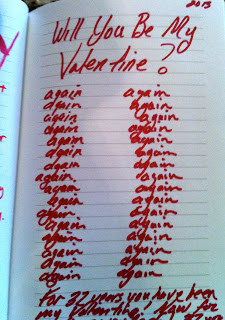 2013
Will You Be My
Valentine?
again again
again again
again again
again again
again again
again again
again again
again again
again again
again again
again again
again again
again again
again again
again again
again again
For 32 years you have been
my Valentine! for